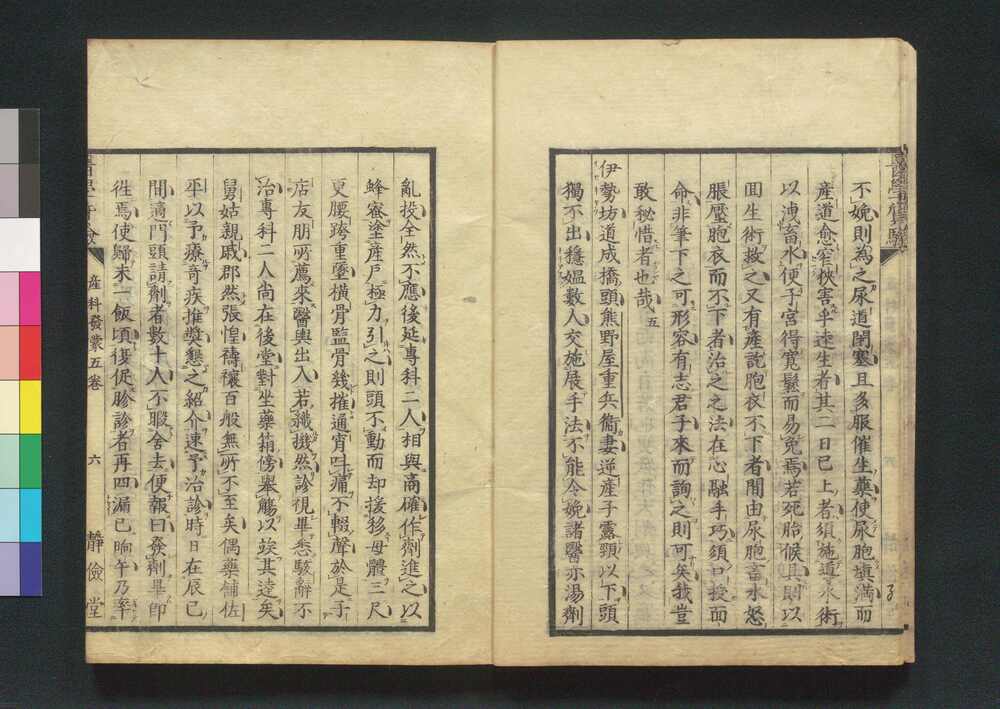 不娩則為之尿道閉塞且多服催生藥使尿胞填滿而
産道愈窄狹害乎速生者其二日已上者須施通水術
以洩畜水便子宮得寬鬆而易免焉若死胎候具則以
回生術救之又有産訖胞衣不下者間由尿胞畜水怒
脹壓胞衣而不下者治之之法在心融手巧須口授面
命非筆下之可形容有志君子來而詢之則可矣我豈
敢秘惜者也哉 五
伊勢坊道成橋頭熊野屋重兵衞妻逆産子露頸以下頭
獨不出穩媼數人交施展手法不能令娩諸醫亦湯劑
亂投全然不應後延專科二人相與商確作劑進之以
蜂蜜塗産戸極力引之則頭不動而却援移母體三尺
更腰跨重墜橫骨監骨幾摧通宵叫痛不輟聲於是于
店友朋所薦來醫輿出入若織機然診視畢悉駭辭不
治專科二人尚在後堂對坐藥箱傍舉觴以竢其逵矣
舅姑親戚郡然張惶禱禳百般無所不至矣偶藥舗佐
平以予療奇疾推奬懇之紹介速予治診時日在辰已
間滴門頭請劑者數十人不暇舍去便報曰發劑畢即
徃焉使歸未一飯頃復促胗診者再四漏已晌午乃率
産科發蒙五卷
六
靜儉堂